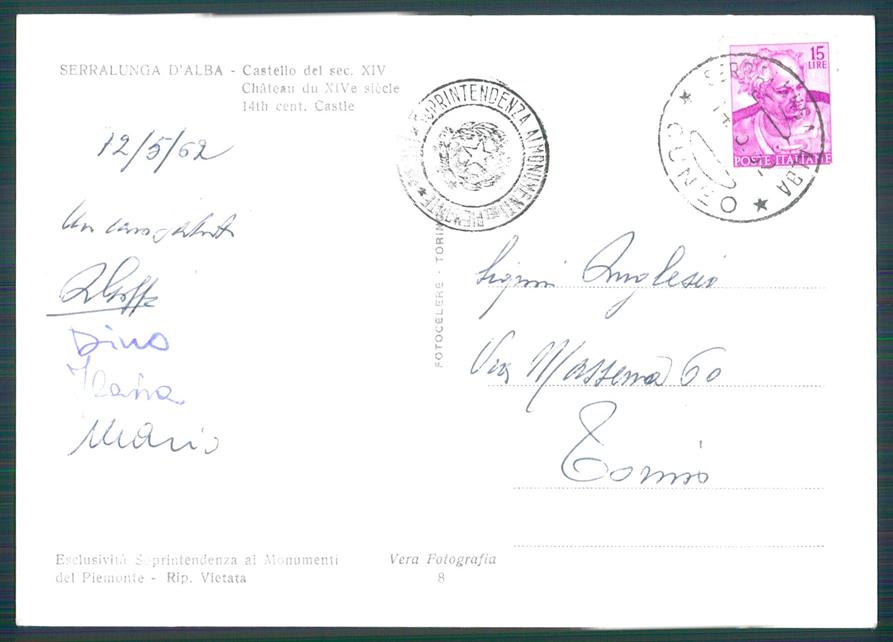 SERRALUNGA D'ALBA - Castello del sec. XIV
Château du XIVe siècle
14th cent. Castle
12/5/62
Un
Dino
Ilaria
Mario
SOPRINTENDENZA AI MONUMENTI PIEMONTE
15
LIRE
POSTE ITALIANE
ALBA * CUNEO *
FOTOCELERE - TORINO
Signori Inglesio
Via Massena 60
Torino
Esclusività Soprintendenza ai Monumenti
del Piemonte - Rip. Vietata
Vera Fotografia
8